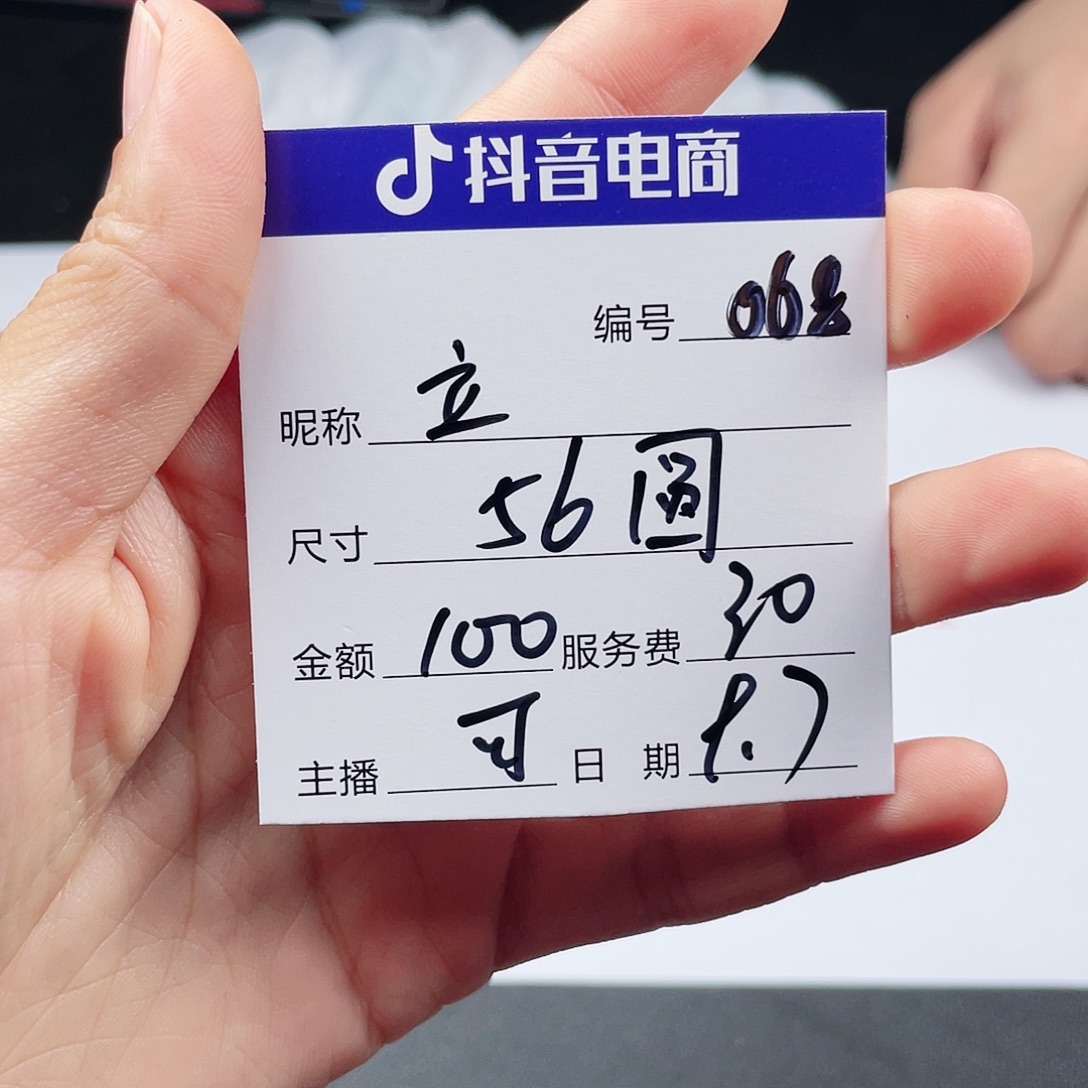 抖音电商
编号 068
昵称 立
尺寸 56圆
金额 100 服务费 30
主播 日 期